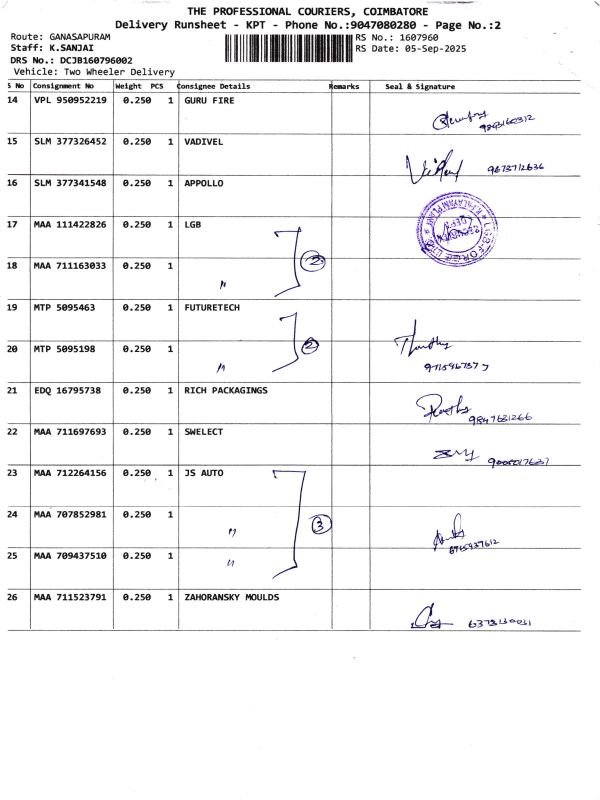 THE PROFESSIONAL COURIERS, COIMBATORE
Delivery Runsheet - KPT - Phone No.:9047080280 - Page No.:2
Route: GANASAPURAM RS No.: 1607960
Staff: K.SANJAI RS Date: 05-Sep-2025
DRS No.: DCJB160796002
Vehicle: Two Wheeler Delivery
S No Consignment No Weight PCS Consignee Details Remarks Seal & Signature
14 VPL 950952219 0.250 1 GURU FIRE
15 SLM 377326452 0.250 1 VADIVEL
9673712636
16 SLM 377341548 0.250 1 APPOLLO
17 MAA 111422826 0.250 1 LGB
18 MAA 711163033 0.250 1 " 2
19 MTP 5095463 0.250 1 FUTURETECH
20 MTP 5095198 0.250 1 " 2
21 EDQ 16795738 0.250 1 RICH PACKAGINGS
9847631266
22 MAA 711697693 0.250 1 SWELECT
23 MAA 712264156 0.250 1 JS AUTO
24 MAA 707852981 0.250 1 " 3
25 MAA 709437510 0.250 1 "
26 MAA 711523791 0.250 1 ZAHORANSKY MOULDS